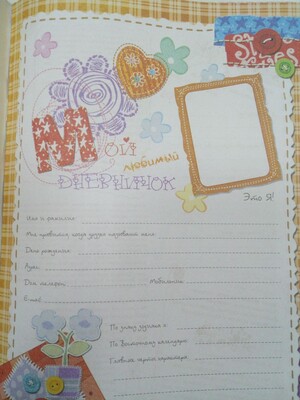 Мой
любимый
дневничок
Это Я!
Имя и фамилия:
Мне нравится, когда друзья называют меня:
Дата рождения:
Адрес:
Дом. телефон: Мобильный:
E-mail:
По знаку зодиака я:
По Восточному календарю:
Главная черта характера: